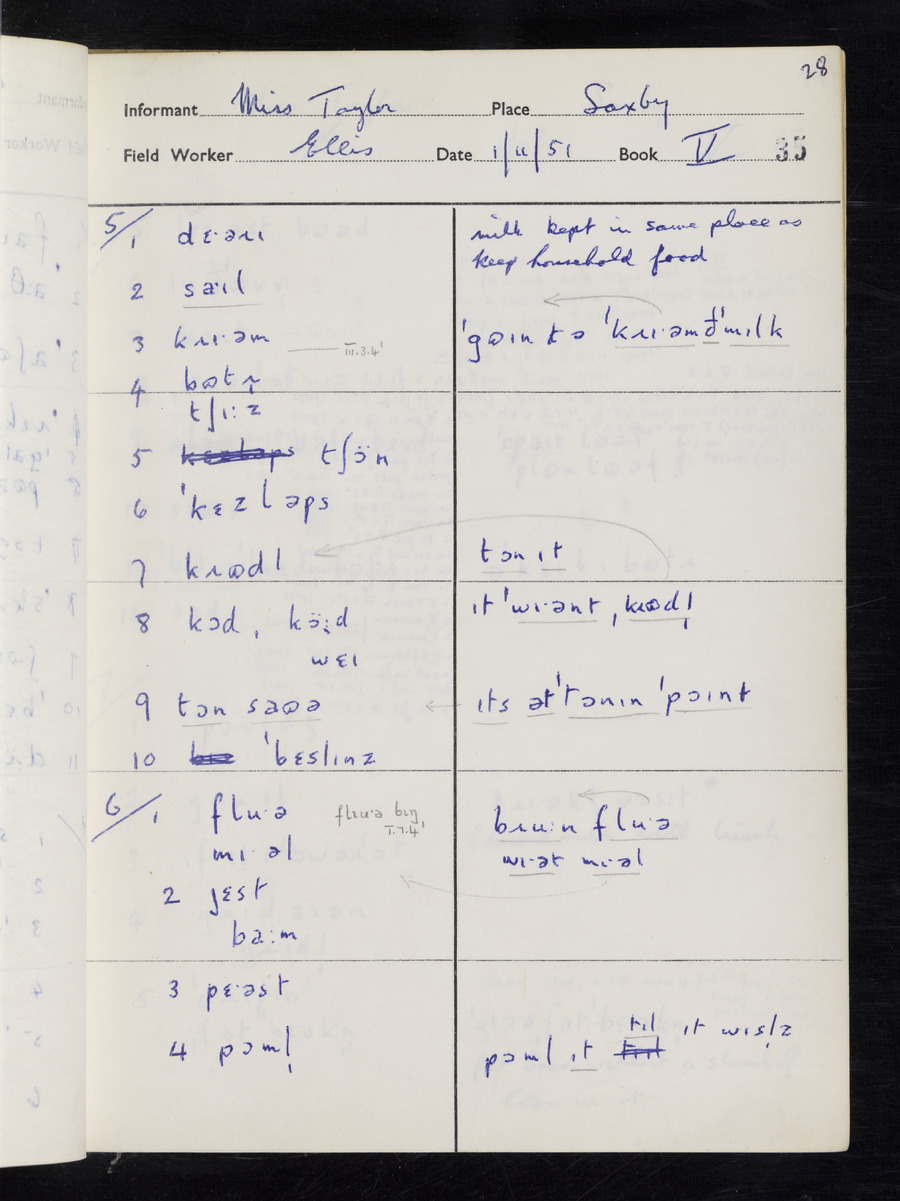 28
Informant Miss Taylor Place Saxby
Field Worker Ellis Date 1/11/51 Book V 35
5/1 dɛ·əɹɪ
milk kept in same place as
keep household food
2 sa·ıl
3 kɹɪ·əm III.3.4
ˈgɷɪn tə ˈkɹɪ·əm ðˈmɪlk
4 bɷtɹ̩
tʃɪ:z
5 tʃɔ̈n
6 ˈkɛzləps
7 kɹɷdl
tɔn ɪt
8 kɔd, kɔ̈:d
wɛɪ
ɪtˈwɪ·ənt, kɹɷdl̩
9 tɔn saɷə
ɪts ətˈtɔnɪn ˈpɔɪnt
10 ˈbɛslɪnz
6/1 flu·ə flɪu·ə bɪŋ
I.7.4
mɪ·əl
bɹu:n flu·ə
wɪ·ət mɪ·əl
2 jɛst
ba:m
3 pɛ·əst
4 pɔml̩
tɪl
pɔml ɪt ɪt wɪsl̩z